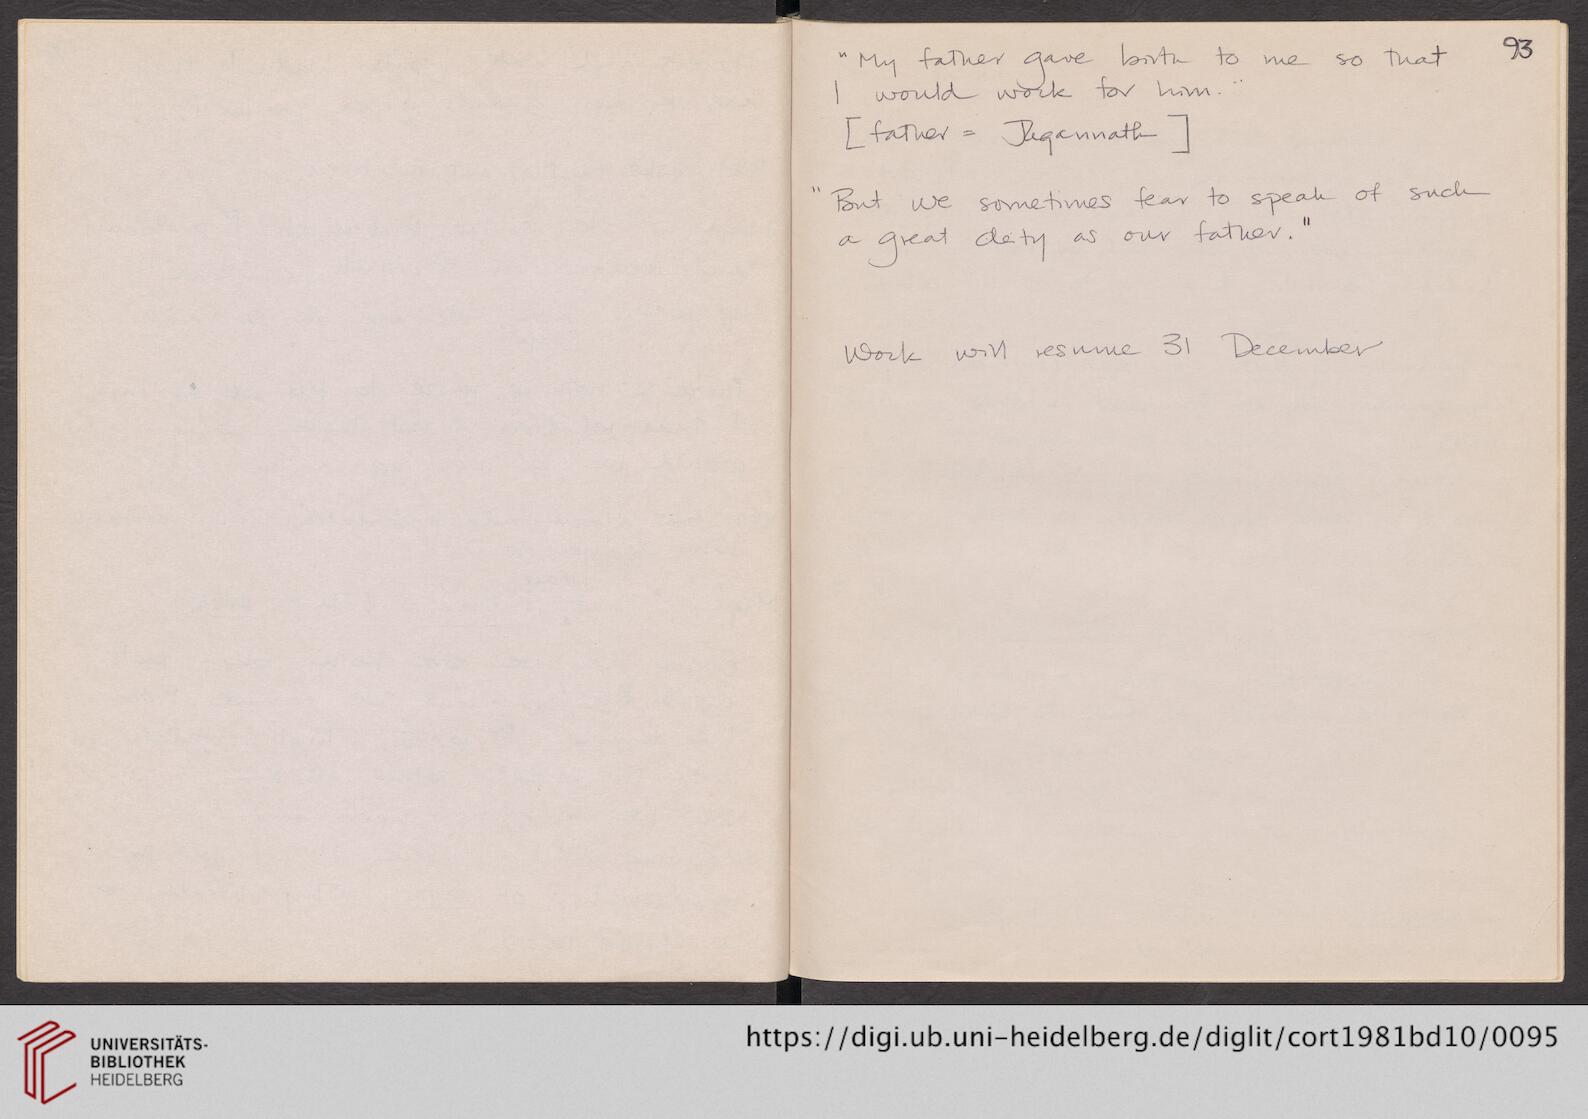 93
"My father gave birth to me so that
I would work for him."
[father = Jagannath]
"But we sometimes fear to speak of such
a great deity as our father."
Work will resume 31 December
UNIVERSITÄTS-
BIBLIOTHEK
HEIDELBERG
https://digi.ub.uni-heidelberg.de/diglit/cort1981bd10/0095